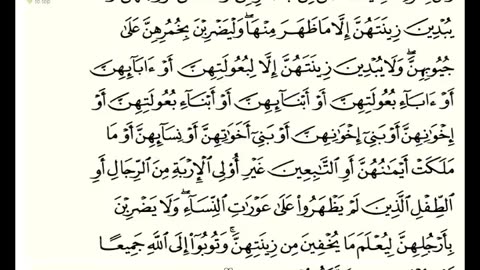 يُبْدِينَ زِينَتَهُنَّ إِلَّا مَا ظَهَرَ مِنْهَا ۖ وَلْيَضْرِبْنَ بِخُمُرِهِنَّ عَلَىٰ
جُيُوبِهِنَّ ۖ وَلَا يُبْدِينَ زِينَتَهُنَّ إِلَّا لِبُعُولَتِهِنَّ أَوْ ءَابَآئِهِنَّ
أَوْ ءَابَآءِ بُعُولَتِهِنَّ أَوْ أَبْنَآئِهِنَّ أَوْ أَبْنَآءِ بُعُولَتِهِنَّ أَوْ
إِخْوَٰنِهِنَّ أَوْ بَنِىٓ إِخْوَٰنِهِنَّ أَوْ بَنِىٓ أَخَوَٰتِهِنَّ أَوْ نِسَآئِهِنَّ أَوْ مَا
مَلَكَتْ أَيْمَٰنُهُنَّ أَوِ ٱلتَّٰبِعِينَ غَيْرِ أُو۟لِى ٱلْإِرْبَةِ مِنَ ٱلرِّجَالِ أَوِ
ٱلطِّفْلِ ٱلَّذِينَ لَمْ يَظْهَرُوا۟ عَلَىٰ عَوْرَٰتِ ٱلنِّسَآءِ ۖ وَلَا يَضْرِبْنَ
بِأَرْجُلِهِنَّ لِيُعْلَمَ مَا يُخْفِينَ مِن زِينَتِهِنَّ ۚ وَتُوبُوٓا۟ إِلَى ٱللَّهِ جَمِيعًا